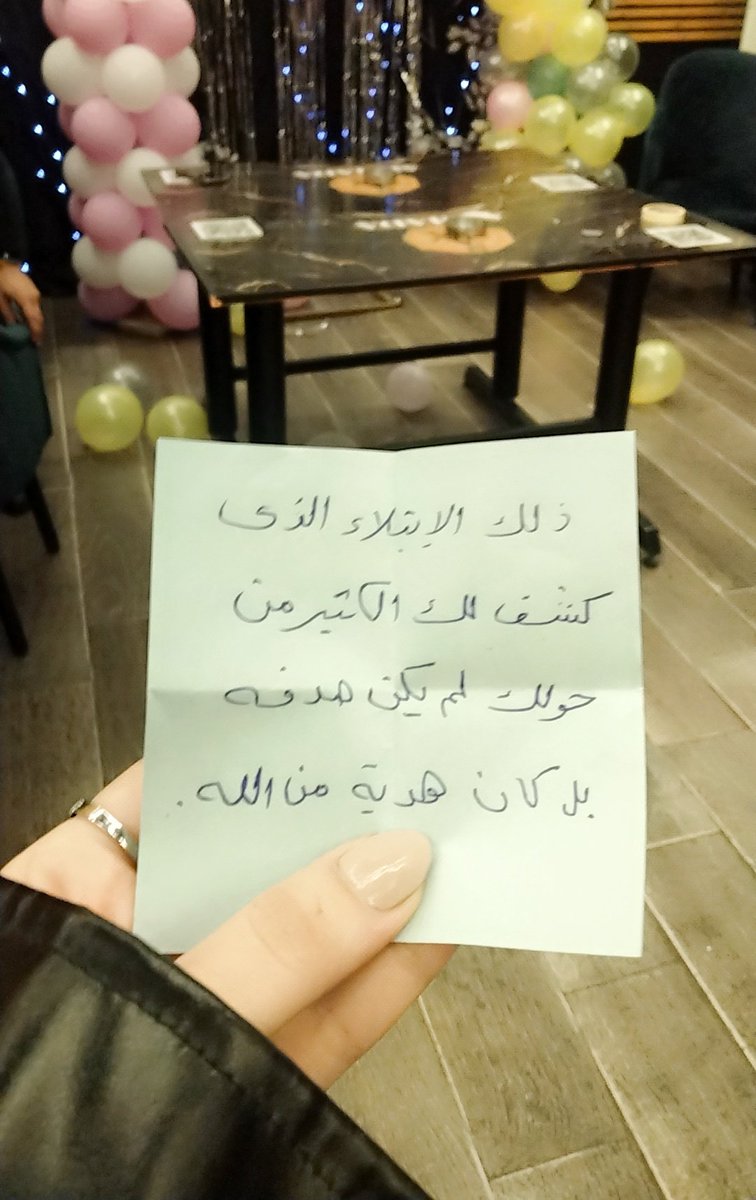 ذلك الإبتلاء الذى
كشف لك الكثير من
حولك لم يكن صدفه
بل كان هدية من الله .